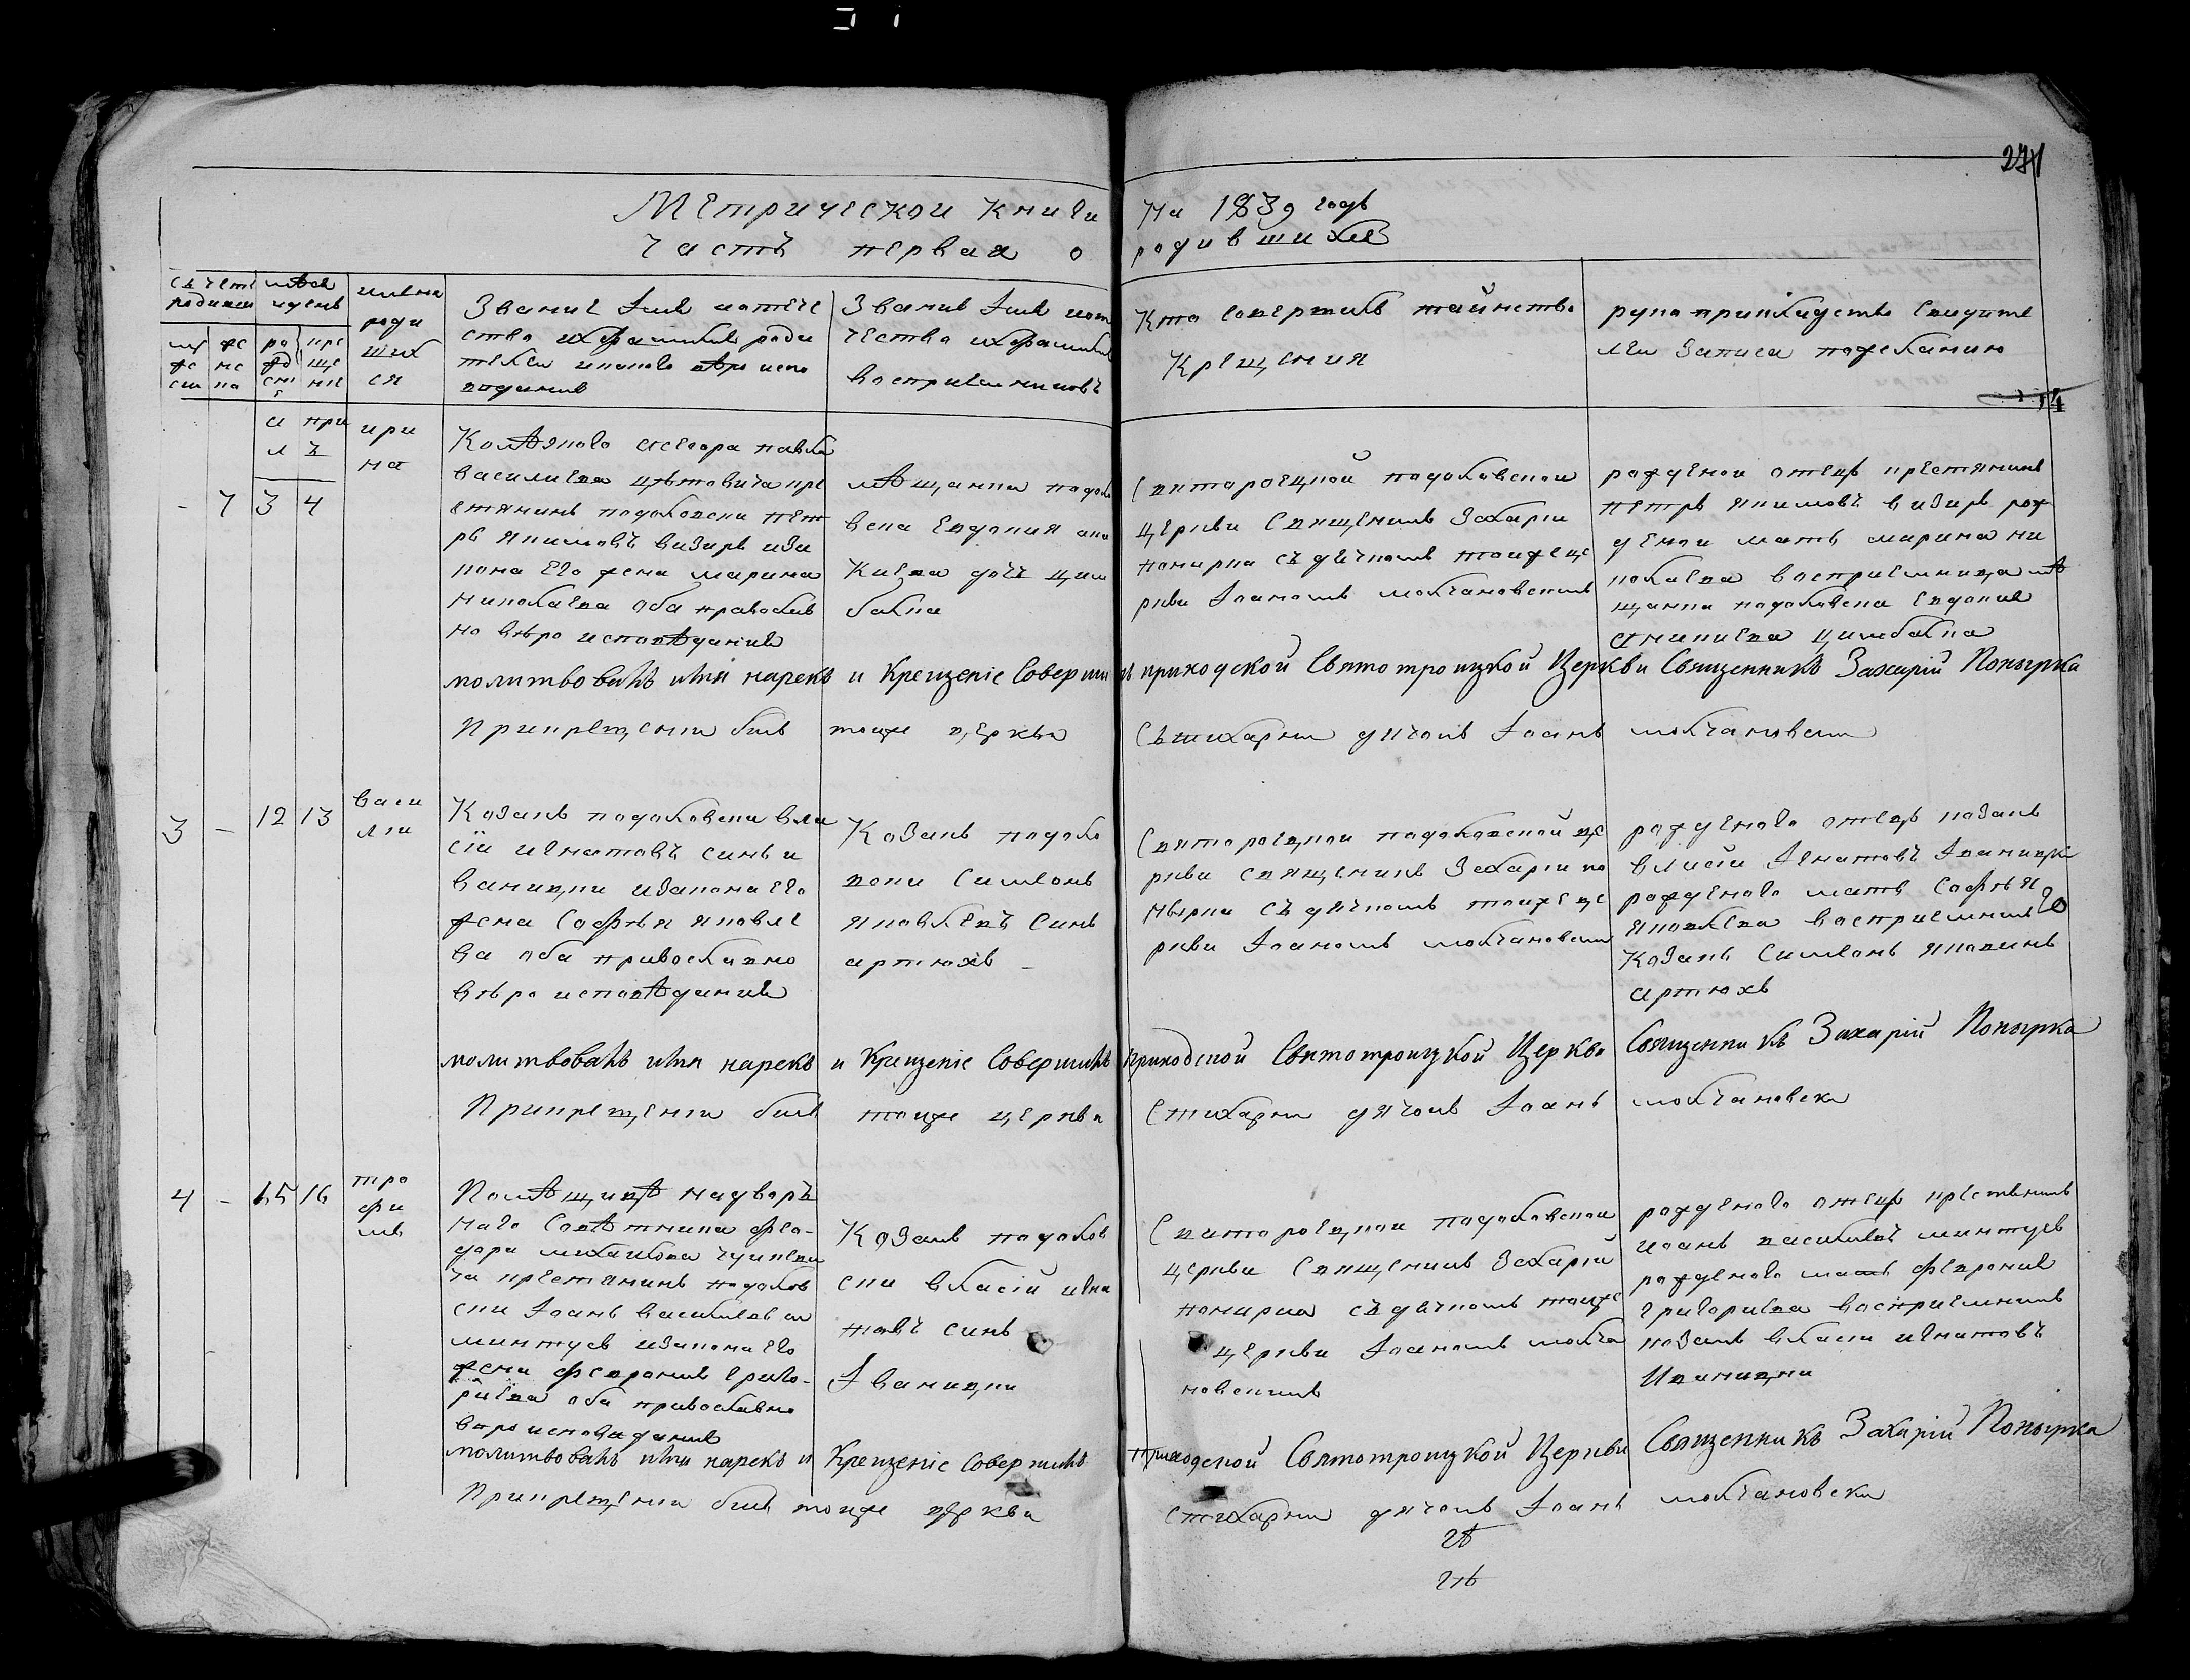 274
Метрической книги на 1839 годъ
часть первая о родившихся
счетъ родивши
мѣся и день
имена роди вших ся
Звание имя и отече
ство и фамилия роди
телей и какого вѣро испо
ведания
Звание имя и от
чество и фамилия
восприемниковъ
Кто совершилъ таинство
крещения
рукоприкладство свидите
лей записи по желанию
муже ска
же нс ка
ро жд ени
кре ще ние
14
апри
лъ
ири
на
- 7 3 4
Колѣзкого асесора павла
василиева цѣтовича кре
стянинъ подоловски пет
ръ якимовъ визирь иза
кона его жена марина
николаева оба православ
но вѣро исповѣдания
мѣщанка подоло
вска евдокия
киева дочь цим
балка
Святороецкой подоловской
церкви священикъ захари
с дячкомъ тоиже це
ркви Иоаномъ молчановскимъ
рожденои отецъ крестянинъ
петръ якимовъ визирь рож
денои мать марина ни
колаева восприемница мѣ
щанка подоловска евдокия
цимбалка
молитвовалъ имя нарекъ и Крещеніе Совершилъ приходской Святотроицкой Церкви Священникъ Захарій Попырка
При крещении билъ тоиже церкви стихарни дячокъ Иоанъ молчановски
3 - 12 13
васи
лии
Козакъ подоловски вла
сіи игнатовъ синъ и
ваницки изакона его
жена софья яковле
ва оба православно
вѣро исповѣдания
Козакъ подоло
вски симеонъ
яковлевъ синъ
артюхъ -
Святороецкои подоловской це
ркви священикъ захари
съ дячкомъ тоиже це
ркви Иоаномъ молчановски
рожденого отецъ козакъ
власіи игнатовъ иваницки
рожденого мать софья
яковлева восприемникъ
козакъ симеонъ яковинъ
артюхъ
молитвовалъ имя нарекъ и Крещеніе Совершилъ приходской Святотроицкой Церкви Священникъ Захарій Попырка
При крещении билъ тоиже церкви стихарни дячокъ Иоанъ молчановски
4 - 15 16
тро
фи
мъ
Помѣщикѣ надворъ
ного совѣтника фео-
дора михаилова
крестянинъ подолов
ски Иоанъ василиевъ
минтусъ изакона его
жена феврония григо-
риева оба православно
вѣро исповедания
Козакъ подолов
ски власій игна
товъ синъ
Иваницки
Святороецкои подоловской
церкви священикъ захарій
съ дячкомъ тоиже
церкви Иоаномъ молча
новскимъ
рожденого отецъ крестянинъ
иоанъ василиевъ минтусъ
рожденого мать феврония
григориева восприемникъ
козакъ власи игнатовъ
иваницки
молитвовалъ имя нарекъ и Крещеніе Совершилъ приходской Святотроицкой Церкви Священникъ Захарій Попырка
При крещении билъ тоиже церкви стихарни дячокъ Иоанъ молчановски